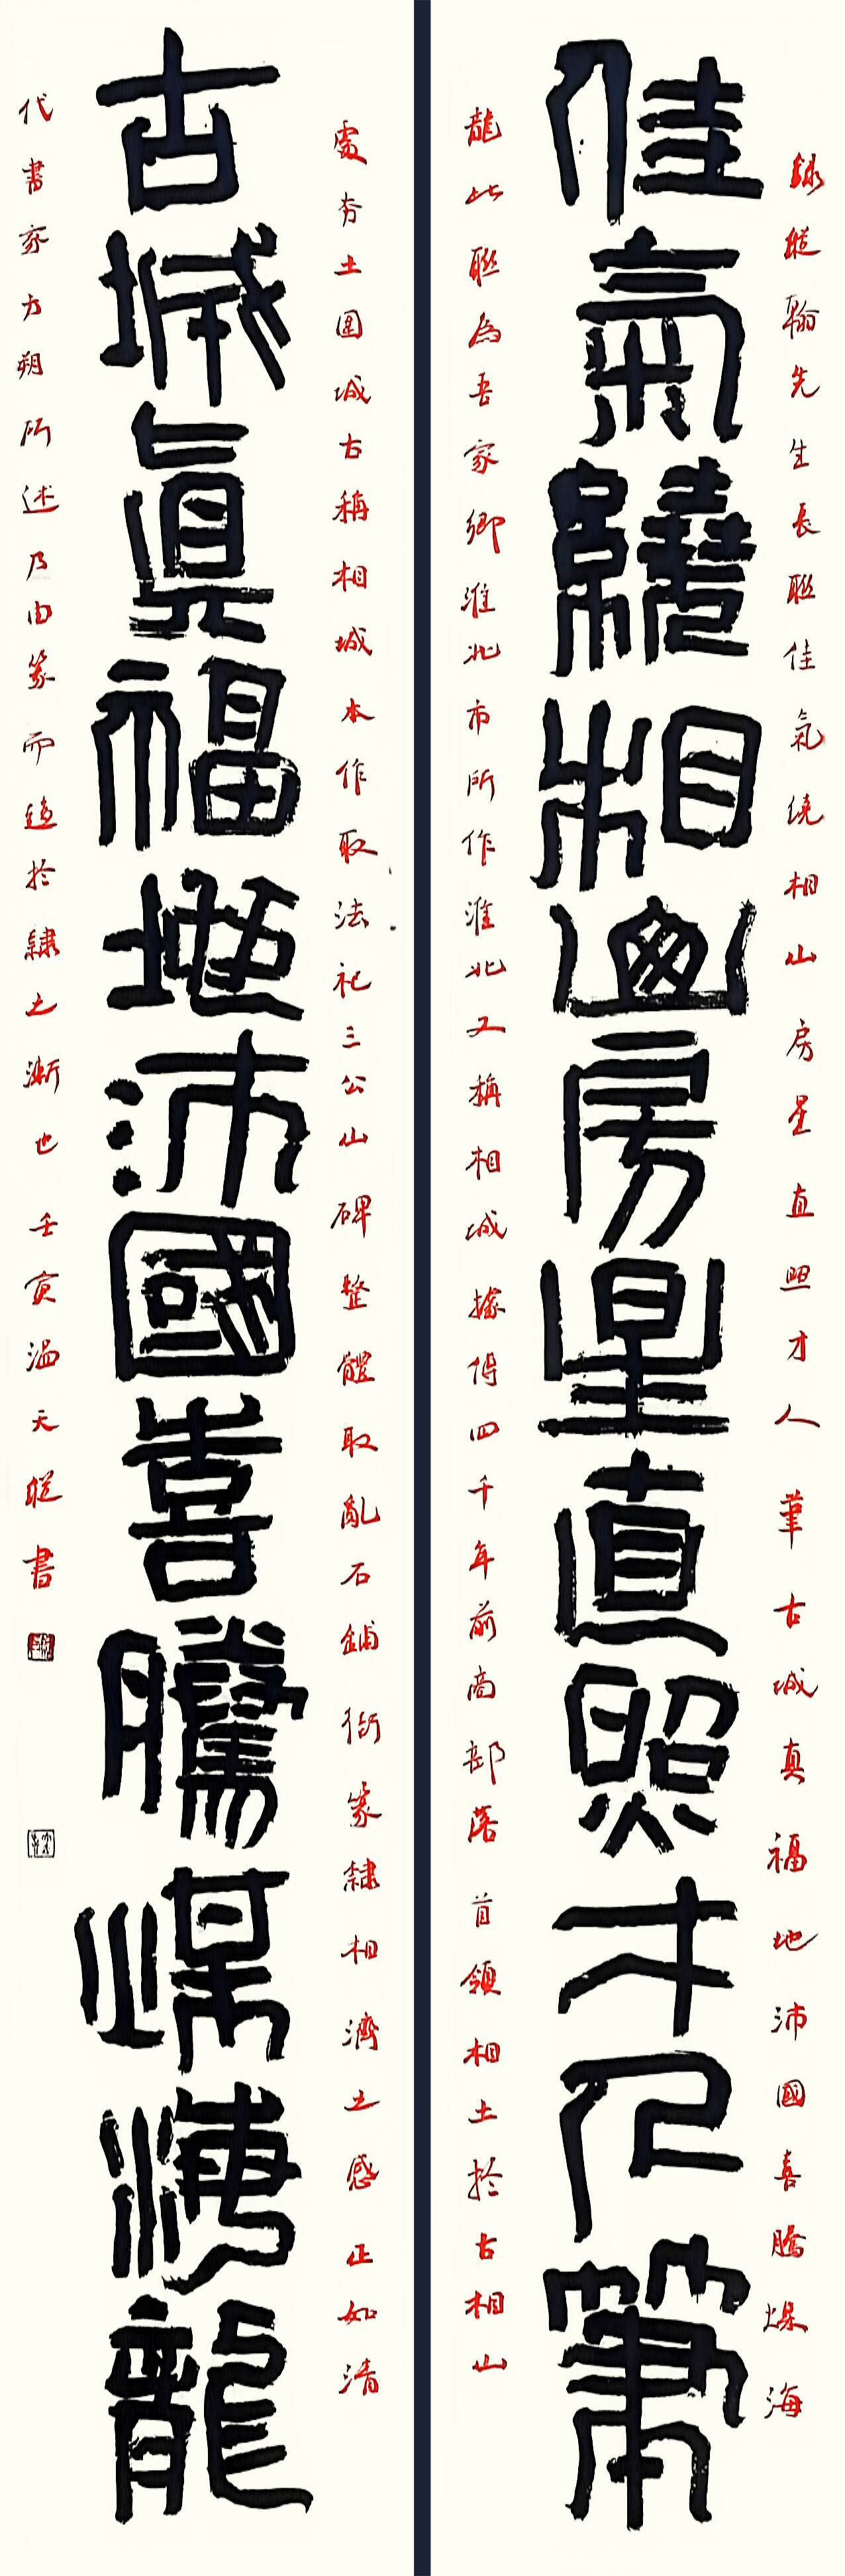 錄縱翰先生長聯佳氣繞相山房星直照才人筆古城真福地沛國喜騰煤海
佳氣繞相山房星直照才人筆
龍此聯為吾家鄉淮北市所作淮北又稱相城據傳四千年前商部落首領相土於古相山
處夯土圍城古稱相城本作取法祀三公山碑整體取亂石鋪街篆隸相濟之感正如清
古城眞福地沛國喜騰煤海龍
代書家方朔所述乃由篆而造於隸之漸也壬寅溫天縱書